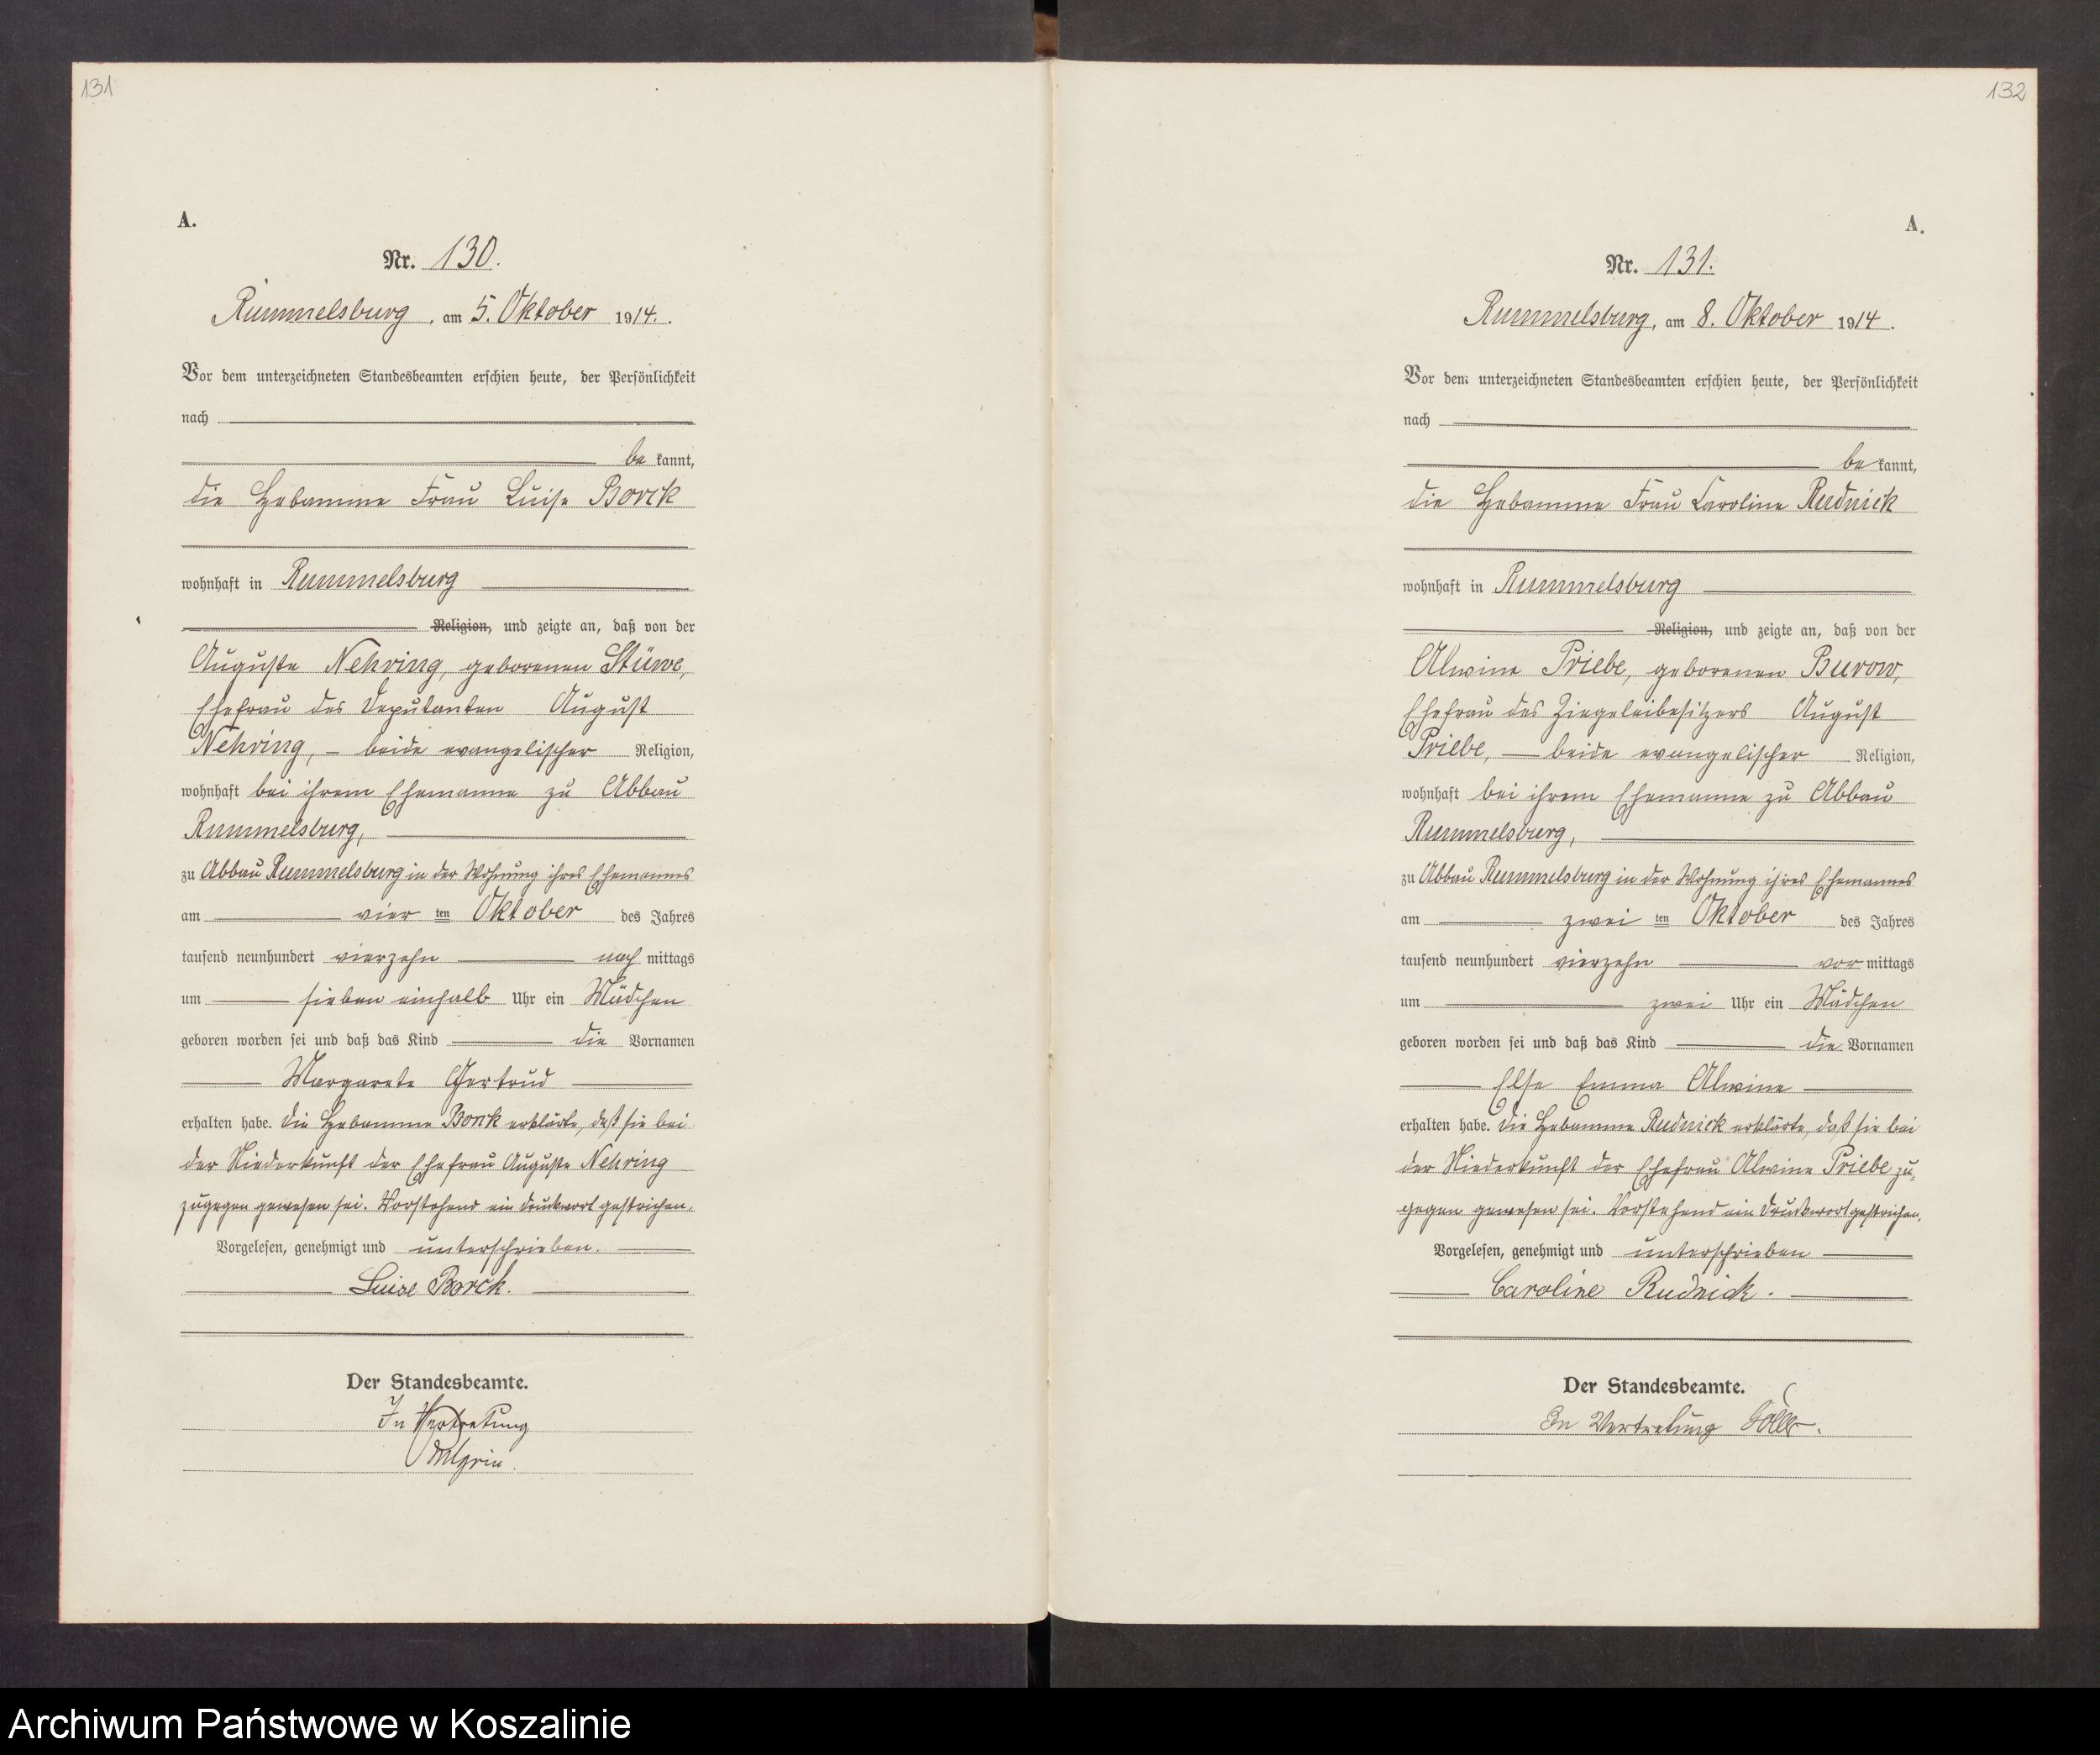 131
A.
Nr. 130.
Rummelsburg, am 5. Oktober 1914.
Vor dem unterzeichneten Standesbeamten erschien heute, der Persönlichkeit
nach
be kannt,
die Hebamme Frau Luise Borck
wohnhaft in Rummelsburg
Religion, und zeigte an, daß von der
Auguste Nehring, geborenen Stüwe,
Ehefrau des Deputanten August
Nehring, – beide evangelischer Religion,
wohnhaft bei ihrem Ehemanne zu Abbau
Rummelsburg,
zu Abbau Rummelsburg in der Wohnung ihres Ehemannes
am vier ten Oktober des Jahres
tausend neunhundert vierzehn nach mittags
um sieben einhalb Uhr ein Mädchen
geboren worden sei und daß das Kind die Vornamen
Margarete Gertrud
erhalten habe. Die Hebamme Borck erklärte, daß sie bei
der Niederkunft der Ehefrau Auguste Nehring
zugegen gewesen sei. Vorstehend ein Druckwort gestrichen.
Vorgelesen, genehmigt und unterschrieben.
Luise Borck.
Der Standesbeamte.
In Vertretung
132
A.
Nr. 131.
Rummelsburg, am 8. Oktober 1914.
Vor dem unterzeichneten Standesbeamten erschien heute, der Persönlichkeit
nach
be kannt,
die Hebamme Frau Caroline Rudnick
wohnhaft in Rummelsburg
Religion, und zeigte an, daß von der
Alwine Priebe, geborenen Burow,
Ehefrau des Ziegeleibesitzers August
Priebe, – beide evangelischer Religion,
wohnhaft bei ihrem Ehemanne zu Abbau
Rummelsburg,
zu Abbau Rummelsburg in der Wohnung ihres Ehemannes
am zwei ten Oktober des Jahres
tausend neunhundert vierzehn vor mittags
um zwei Uhr ein Mädchen
geboren worden sei und daß das Kind die Vornamen
Else Emma Alwine
erhalten habe. Die Hebamme Rudnick erklärte, daß sie bei
der Niederkunft der Ehefrau Alwine Priebe zu-
gegen gewesen sei. Vorstehend ein Druckwort gestrichen.
Vorgelesen, genehmigt und unterschrieben
Caroline Rudnick.
Der Standesbeamte.
In Vertretung
Archiwum Państwowe w Koszalinie